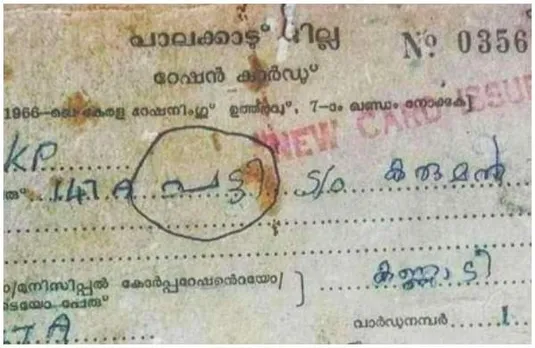 പാലക്കാട് ജില്ല
Nº 0356
റേഷൻ കാർഡ്
1966-ലെ കേരള റേഷനിംഗ് ഉത്തരവു്, 7-ാം ഖണ്ഡം നോക്കുക]
NEW CARD ISSUE
KP
147 A പട്ടി S/o കരുമൻ
കണ്ണാടി
/മുനിസിപ്പൽ കോർപ്പറേഷന്റെയോ/
ടെയോ പേര്
7 A
വാർഡുനമ്പർ 1